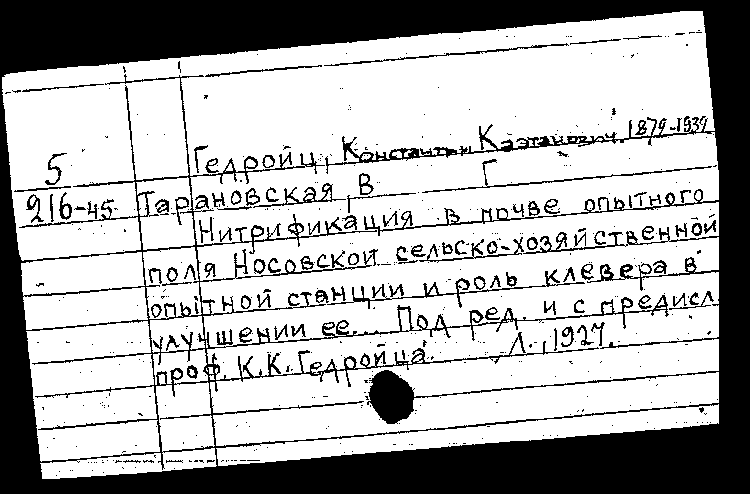 5 Гедройц, Константин Каэтанович. 1879-1939
216-45 Тарановская, В Г
Нитрификация в почве опытного
поля Носовской сельско-хозяйственной
опытной станции и роль клевера в
улучшении ее... Под ред. и с предисл.
проф. К.К. Гедройца. Л., 1927.